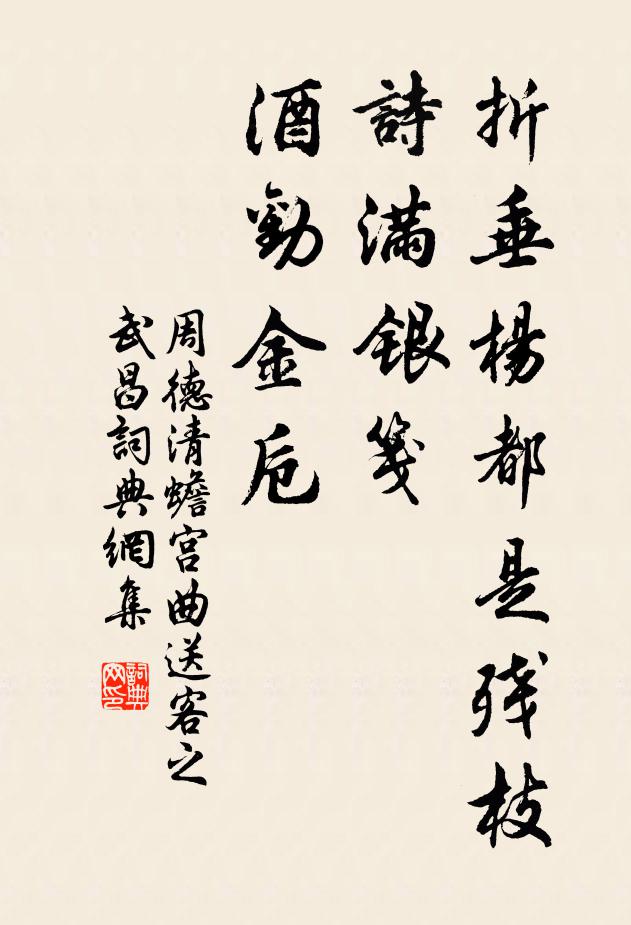 折垂楊都是殘枝
詩滿銀箋
酒勸金卮
周德清蟾宮曲送客之
武昌詞典網集
詞典網印